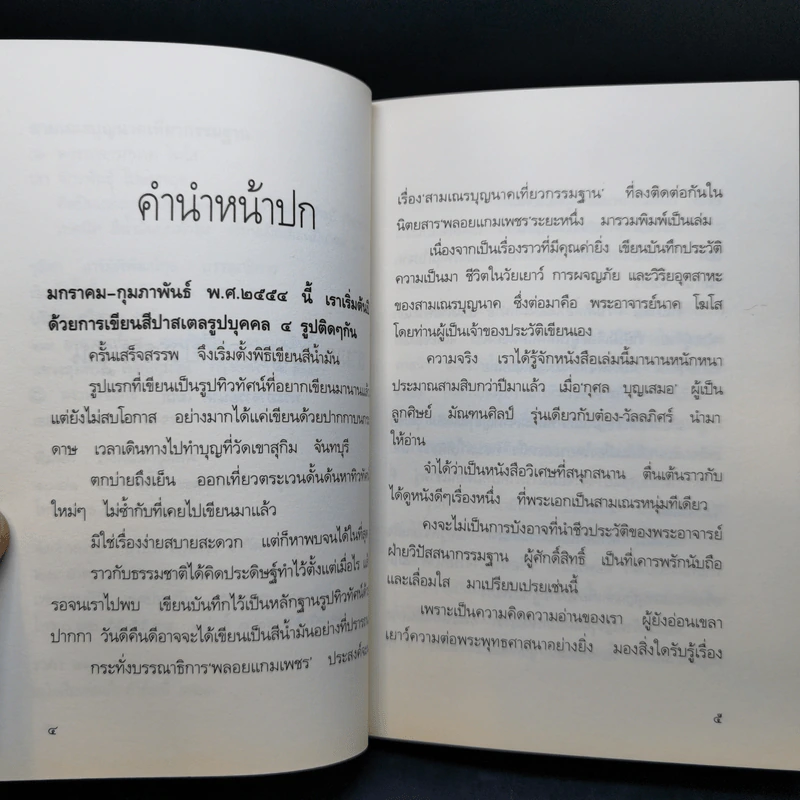 คำนำหน้าปก
มกราคม-กุมภาพันธ์ พ.ศ.๒๕๕๔ นี้ เราเริ่มต้น
ด้วยการเขียนสีปาสเตลรูปบุคคล ๔ รูปติดๆกัน
ครั้นเสร็จสรรพ จึงเริ่มตั้งพิธีเขียนสีน้ำมัน
รูปแรกที่เขียนเป็นรูปทิวทัศน์ที่อยากเขียนมานานแล้ว
แต่ยังไม่สบโอกาส อย่างมากได้แค่เขียนด้วยปากกาบน
ดาษ เวลาเดินทางไปทำบุญที่วัดเขาสุกิม จันทบุรี
ตกบ่ายถึงเย็น ออกเที่ยวตระเวนดั้นด้นหาทิวทัศน์
ใหม่ๆ ไม่ซ้ำกับที่เคยไปเขียนมาแล้ว
มิใช่เรื่องง่ายสบายสะดวก แต่ก็หาพบจนได้ในที่สุด
ราวกับธรรมชาติได้คิดประดิษฐ์ทำไว้ตั้งแต่เมื่อไร
รอจนเราไปพบ เขียนบันทึกไว้เป็นหลักฐานรูปทิวทัศน์ด้วย
ปากกา วันดีคืนดีอาจจะได้เขียนเป็นสีน้ำมันอย่างที่
กระทั่งบรรณาธิการ'พลอยแกมเพชร' ประสงค์
๔
เรื่อง'สามเณรบุญนาคเที่ยวกรรมฐาน' ที่ลงติดต่อกันใน
นิตยสาร'พลอยแกมเพชร'ระยะหนึ่ง มารวมพิมพ์เป็นเล่ม
เนื่องจากเป็นเรื่องราวที่มีคุณค่ายิ่ง เขียนบันทึกประวัติ
ความเป็นมา ชีวิตในวัยเยาว์ การผจญภัย และวิริยอุตสาหะ
ของสามเณรบุญนาค ซึ่งต่อมาคือ พระอาจารย์นาค โฆโส
โดยท่านผู้เป็นเจ้าของประวัติเขียนเอง
ความจริง เราได้รู้จักหนังสือเล่มนี้มานานหนักหนา
ประมาณสามสิบกว่าปีมาแล้ว เมื่อ'กุศล บุญเสมอ' ผู้เป็น
ลูกศิษย์ มัณฑนศิลป์ รุ่นเดียวกับต๋อง-วัลลภิศร์ นำมา
ให้อ่าน
จำได้ว่าเป็นหนังสือวิเศษที่สนุกสนาน ตื่นเต้นราวกับ
ได้ดูหนังดีๆเรื่องหนึ่ง ที่พระเอกเป็นสามเณรหนุ่มทีเดียว
คงจะไม่เป็นการบังอาจที่นำชีวประวัติของพระอาจารย์
ฝ่ายวิปัสสนากรรมฐาน ผู้ศักดิ์สิทธิ์ เป็นที่เคารพรักนับถือ
และเลื่อมใส มาเปรียบเปรยเช่นนี้
เพราะเป็นความคิดความอ่านของเรา ผู้ยังอ่อนเขลา
เยาว์ความต่อพระพุทธศาสนาอย่างยิ่ง มองสิ่งใดรับรู้เรื่อง
๕